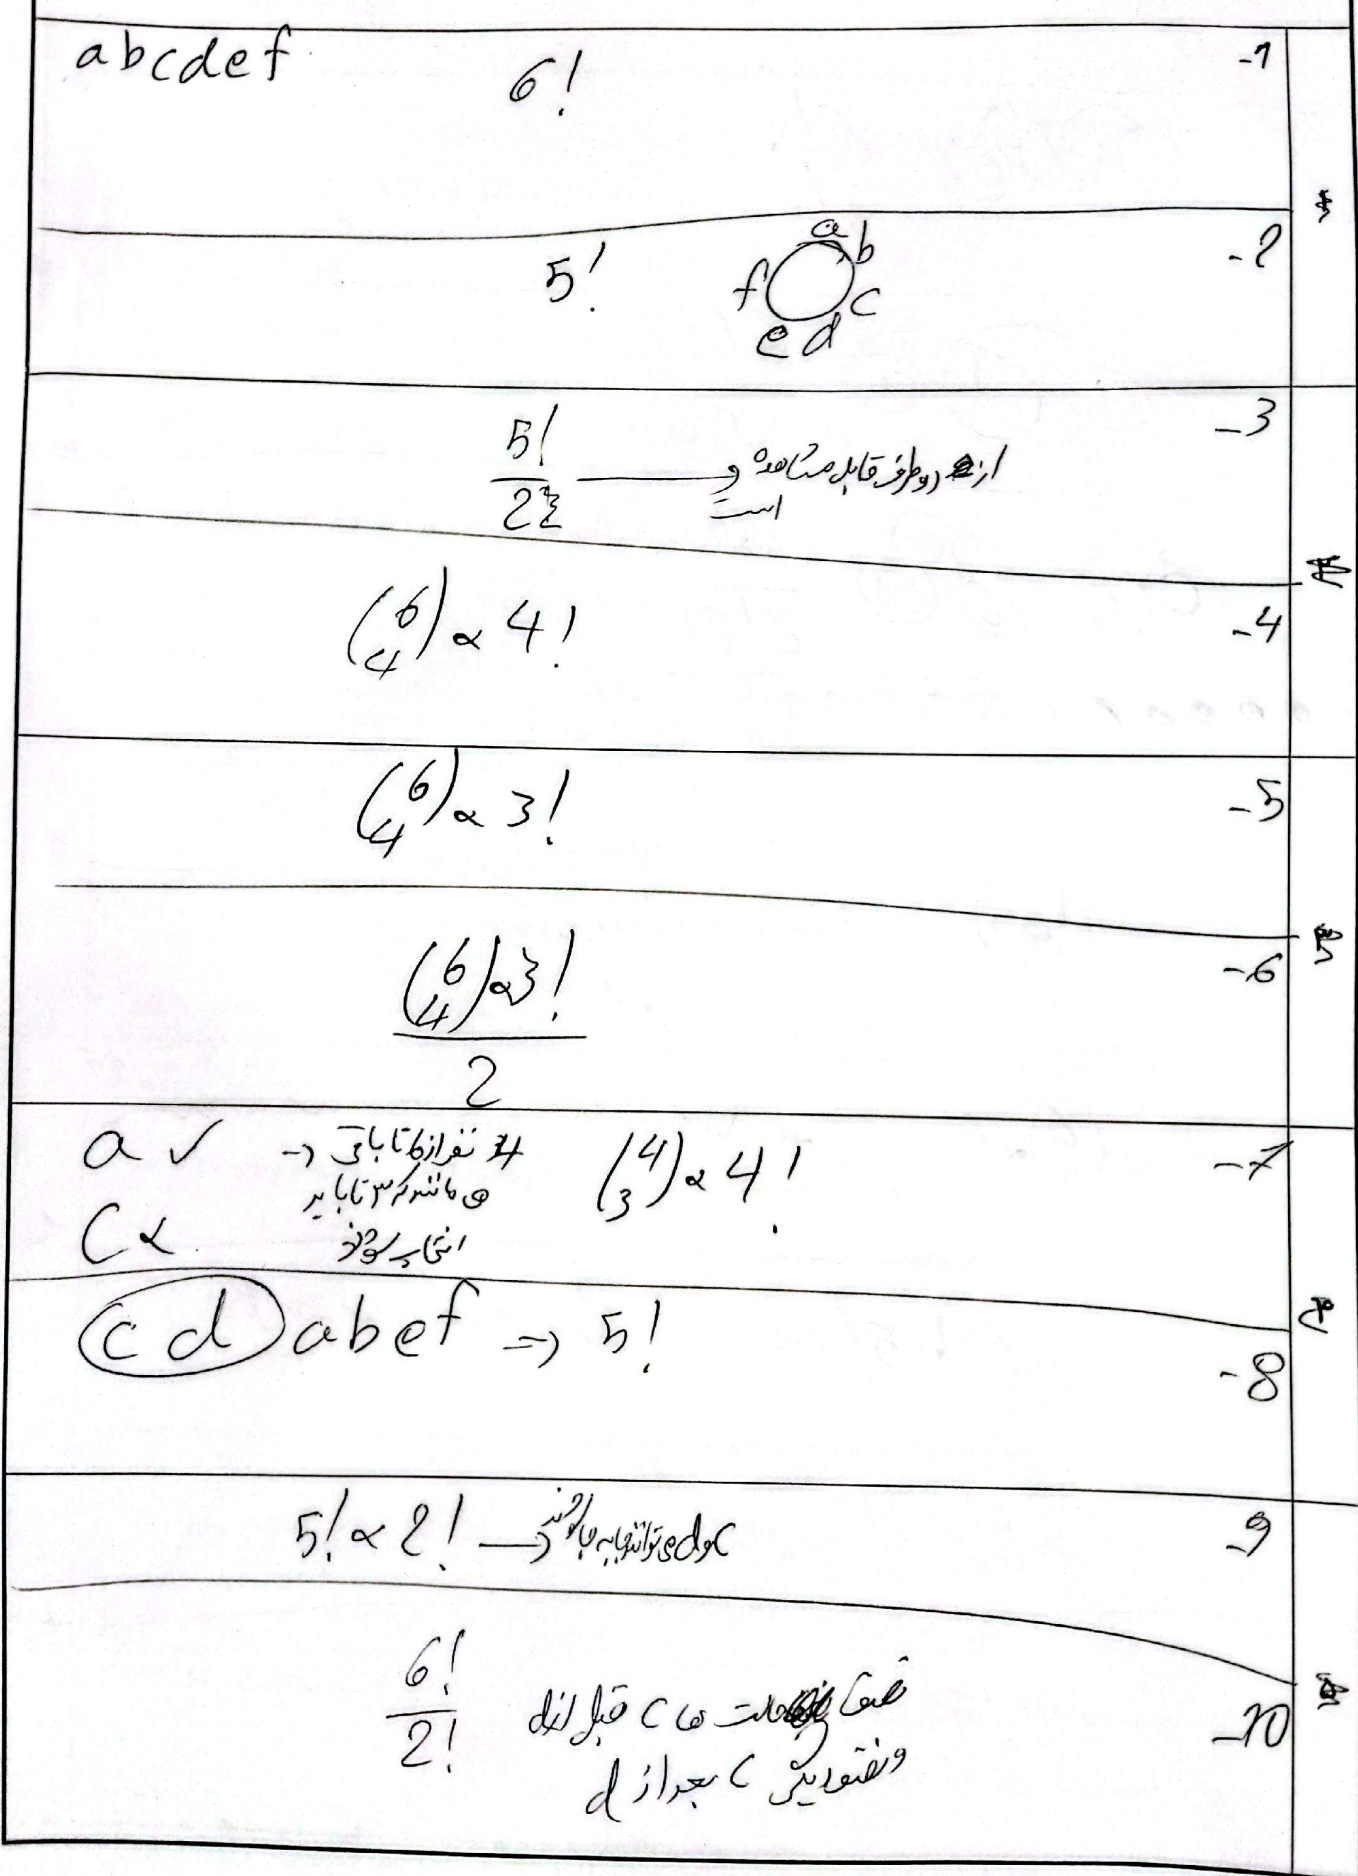 -1
abcdef
6!
-2
5!
a
b
c
d
e
f
-3
5!
2
از دو طرف قابل مشاهده
است
-4
(6 4) × 4!
-5
(6 4) × 3!
-6
(6 4) × 3!
2
-7
a ✓
C ×
4 نفر از 6 تا باقی →
می مانند که ۳ تا باید
انتخاب شوند
(4 3) × 4!
-8
cd abef => 5!
-9
5! × 2! → c و d می توانند جا به جا شوند
-10
6!
2!
نصف حالت ها c قبل از d
و نصف دیگر c بعد از d